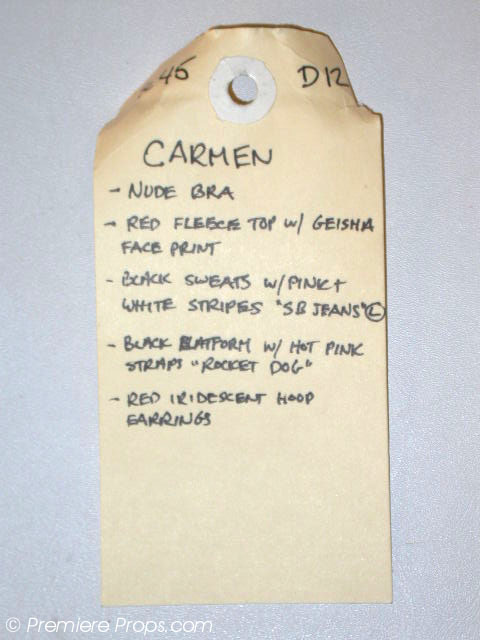 45 D12
CARMEN
- NUDE BRA
- RED FLEECE TOP W/ GEISHA
FACE PRINT
- BLACK SWEATS W/PINK +
WHITE STRIPES "SB JEANS" L
- BLACK PLATFORM W/ HOT PINK
STRAPS "ROCKET DOG"
- RED IRIDESCENT HOOP
EARRINGS
© Premiere Props.com